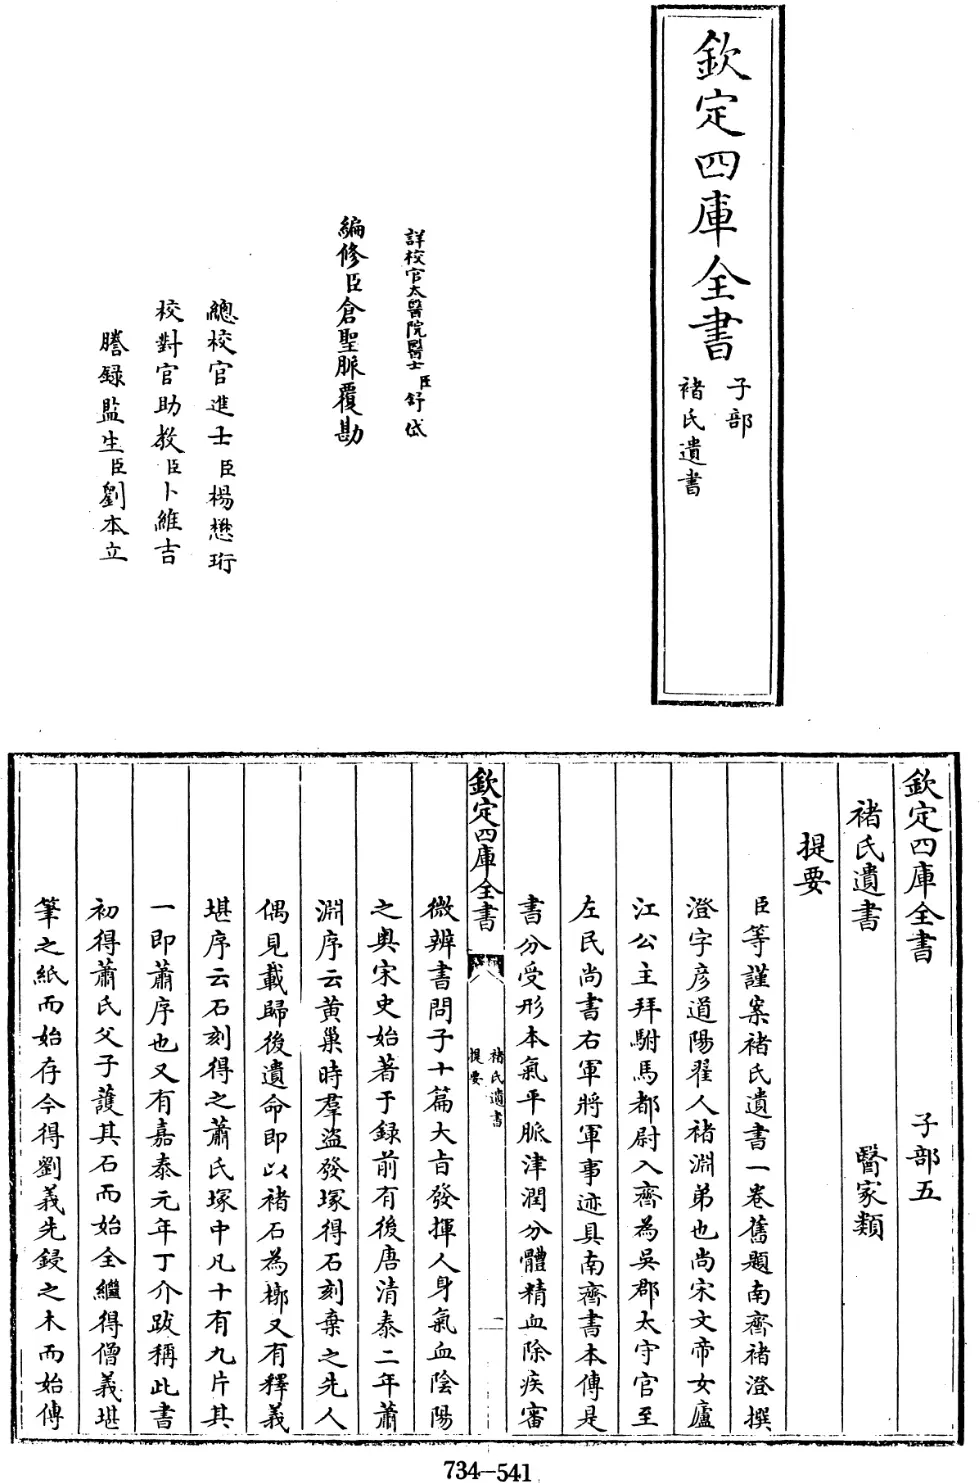 欽定四庫全書
子部
褚氏遺書
詳校官太醫院醫士臣舒岱
編修臣倉聖脈覆勘
總校官進士臣楊懋珩
校對官助教臣卜維吉
謄録監生臣劉本立
欽定四庫全書 子部五
褚氏遺書 醫家類
提要
臣等謹案褚氏遺書一卷舊題南齊褚澄撰
澄字彦道陽翟人褚淵弟也尚宋文帝女廬
江公主拜駙馬都尉入齊為吳郡太守官至
左民尚書右軍將軍事迹具南齊書本傳是
書分受形本氣平脈津潤分體精血除疾審
欽定四庫全書
褚氏遺書
提要
一
微辨書問子十篇大旨發揮人身氣血陰陽
之奥宋史始著于録前有後唐清泰二年蕭
淵序云黄巢時羣盜發塚得石刻棄之先人
偶見載歸後遺命即以褚石為槨又有釋義
堪序云石刻得之蕭氏塚中凡十有九片其
一即蕭序也又有嘉泰元年丁介跋稱此書
初得蕭氏父子護其石而始全繼得僧義堪
筆之紙而始存今得劉義先鋟之木而始傳
734-541